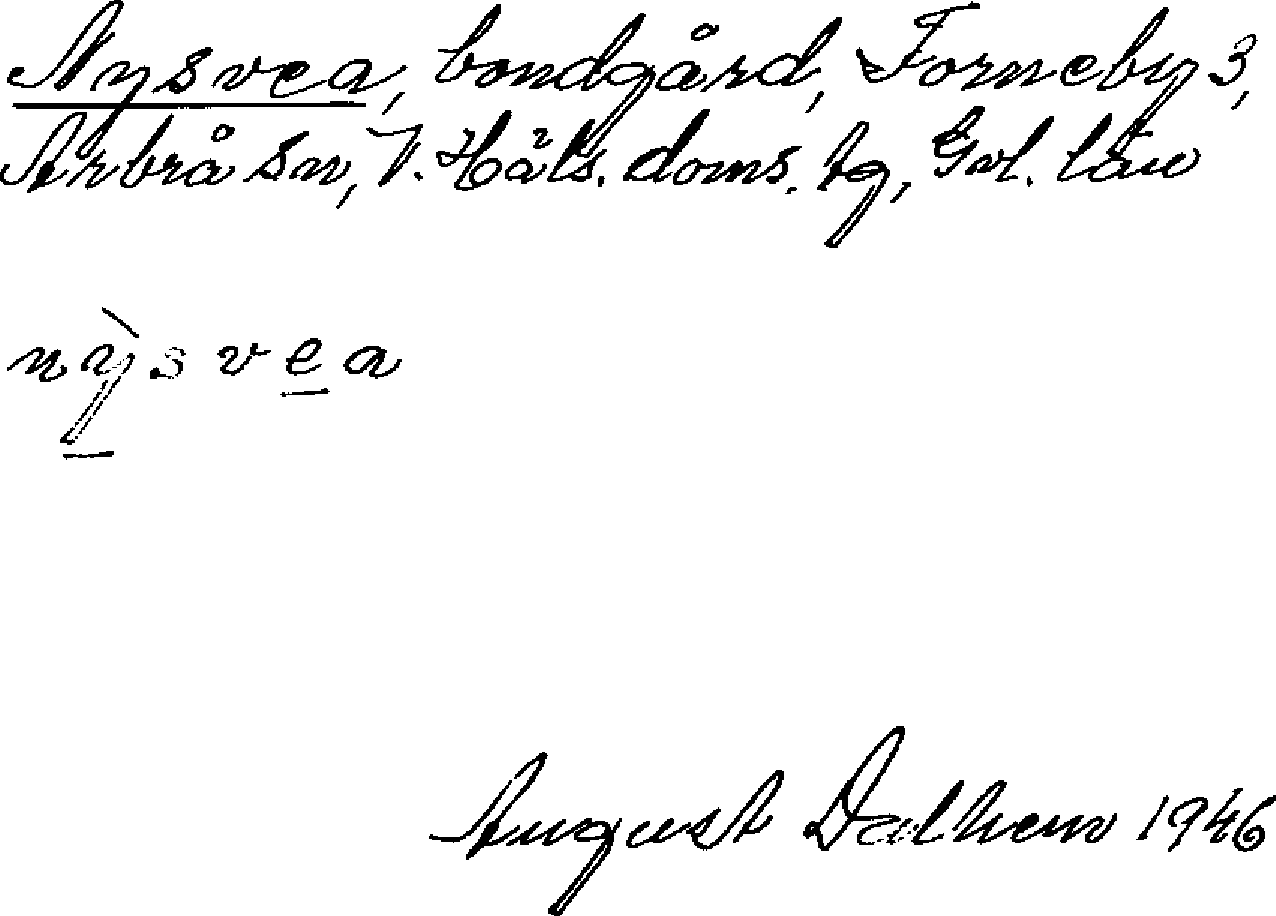 Nysvea, bondgård, Forneby 3,
Arbrå sn, V. Häls. doms. tg, Gvl. län
nỳsvea
August Dalhem 1946